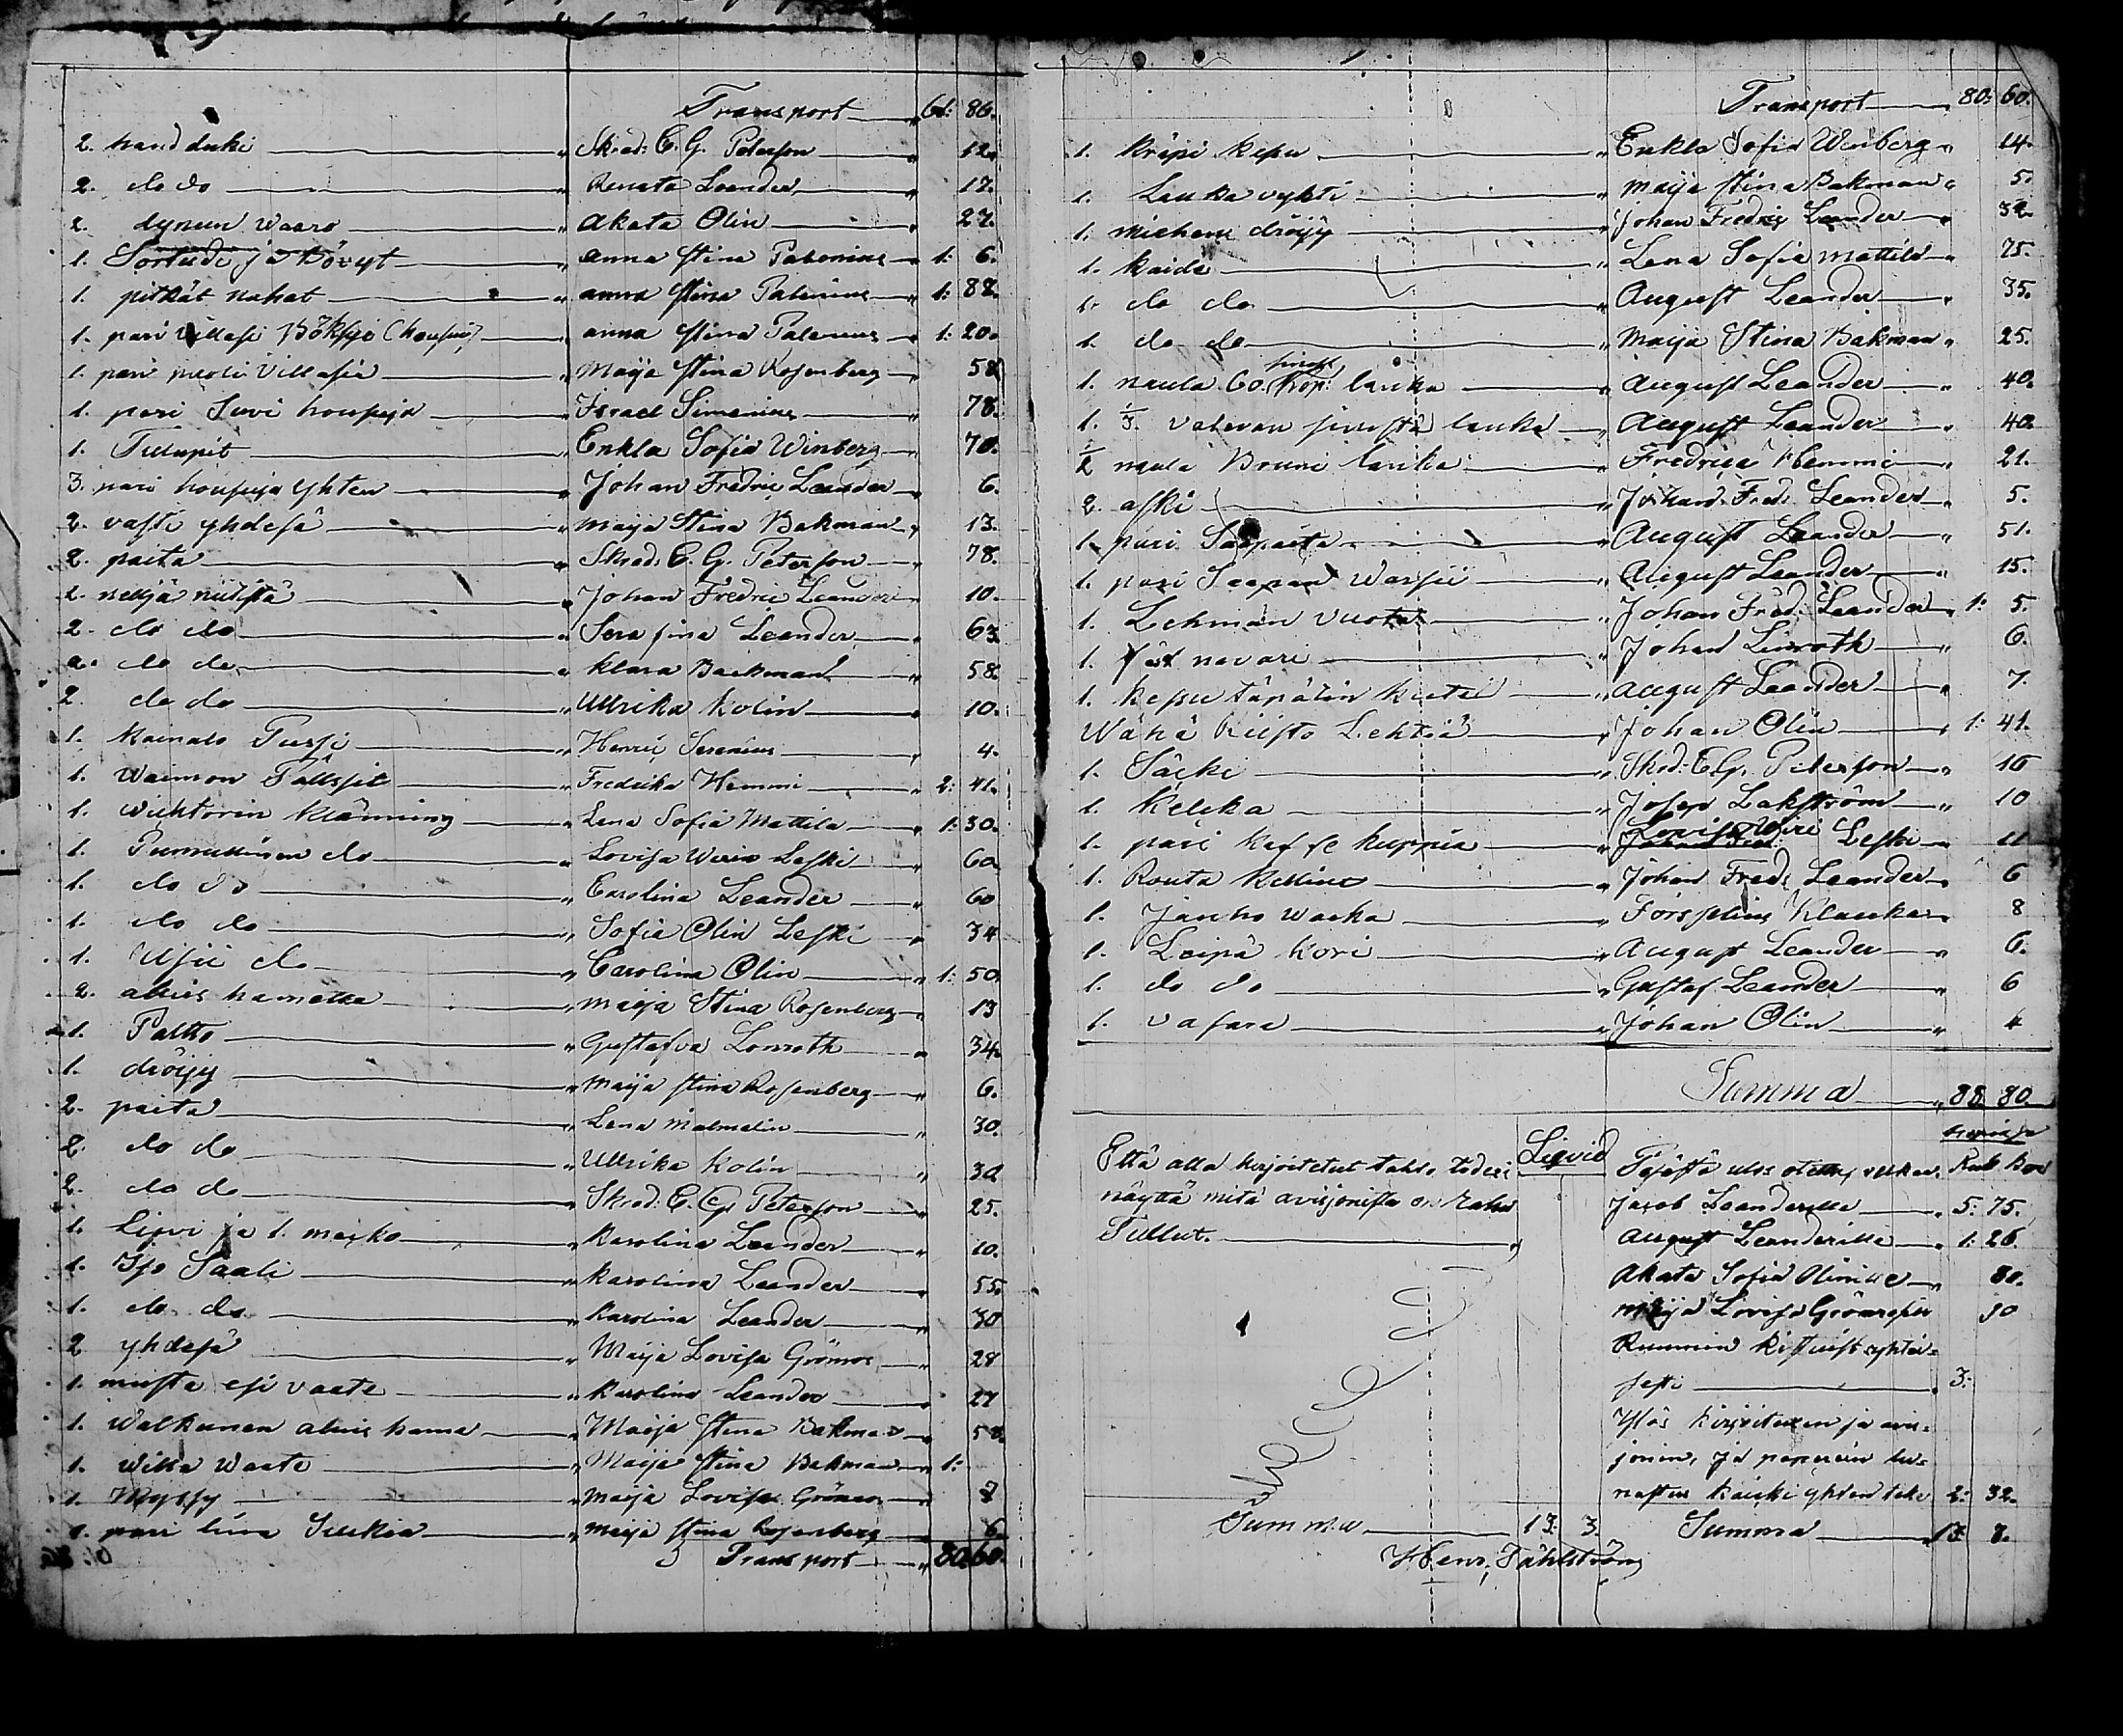 Transport 86.
2. handduki Skrad: C. G. Peterson 12.
2. do do Renata Leander 17.
2. dynun waaro Akata Olin 27.
1. ja Böxyt anna Stina Palenius 1: 6.
1. pitkät nahat anna Stina Palenius 1: 88.
1. pari villasi Böksyjä (housui) anna Stina Palenius 1: 20.
1. pari puoli villasia Maija Stina Rosenberg 58
1. pari suvi housuja Israel Simenius 78.
1. Tulupit Enkla Sofia Winberg 70.
3. pari housuja yhten Johan Fredric Leander 6.
2. vasti yhdesä Maija Stina Bakman 13.
2. paita Skrad: C. G. Peterson 78.
2. neljä niitistä Johan Fredric Leander 10.
2. do do Serafina Leander 63.
2. do do Klara Backman 58.
2. do do Ullrika Kolin 10.
1. Kainalo Pussi Henric Serenius 4.
1. Waimon Fredrika Hemmi 2: 41.
1. Wichtorin Klänning Lena Sofia Mattila 1: 30.
1. Pumullinen do Lovisa Werin Leski 60
1. do do Carolina Leander 60
1. do do Sofia Olin Leski 34
1. Usii do Carolina Olin 1: 50
2. allus hametta Maija Stina Rosenberg 13
1. Paltto Gustafva Lonroth 34.
1. dröijy Maija Stina Rosenberg 6.
2. paita Lena Malmelin 30.
2. do do Ullrika Kolin 30
2. do do Skrad: C. G. Peterson 25.
1. Lijvi ja 1. majko Karolina Leander 10.
1. Iso Saali Karolina Leander 55.
1. do do Karolina Leander 30
2 yhdesä Maija Lovisa Grönroos 28
1. musta esi vaate Karolina Leander 27
1. Walkunen alus hama Maija Stina Bakman 58.
1. Willa Waate Maija Stina Bakman 1:
1. Myssy Maija Lovisa Grönroos
1. pari liina Sukkia Maija Stina Rosenberg 6
Transport 80. 60.
Transport 80: 60.
1. Kräpi kepu Enkla Sofia Winberg 14.
1. Lanka vyhti Maija Stina Bakman 5.
1. miehen dröijy Johan Fredric Leander 32.
1. Kaide Lena Sofia Mattila 75.
1. do do August Leander 35.
1. do do Maija Stina Bakman 25.
1. naula 60. lanka August Leander 40.
1. 1/3. valevan sinistä lankaa August Leander 40.
1/2 naula Bruni lanka Fredrica Hemmi 21.
2. aski Johan Fred: Leander 5.
1. pari Saapaita August Leander 51.
1. pari Saapan Warsii August Leander 15.
1. Lehmän vuota Johan Fred: Leander 1: 5.
1. navari Johan Linroth 6.
1. kepu täpätin August Leander 7
Wähä Riisto Lehtiä Johan Olin 1: 41.
1. Säcki Skrad: C. G. Peterson 10
1. Kelcka Josep Lakström 10
1. pari kaffe kuppia Lovisa Weri Leski 11
1. Routa Kelline Johan Fred: Leander 6
1. Jauho wacka Klaukas 8
1. Leipä kori August Leander 6.
1. do do Gustaf Leander 6
1. vasara Johan Olin 4
Summa 88 80
Että alla kirjoitetut
näyttä mitä avisjonista on Raha
Tullut.
Liqvid
Rub Kop
Jacob Leanderilla 5: 75.
August Leanderilla 1: 26.
Akata Sofia 80.
Maija Lovisa
Rummin yhtei=
sesti 3:
Ylös kirjoitaxen ja avis=
jonin, ja paperein lu=
nastus kaicki yhten teke 2: 32.
Summa 13: 3.
Summa 13
Henr, Tåhlström